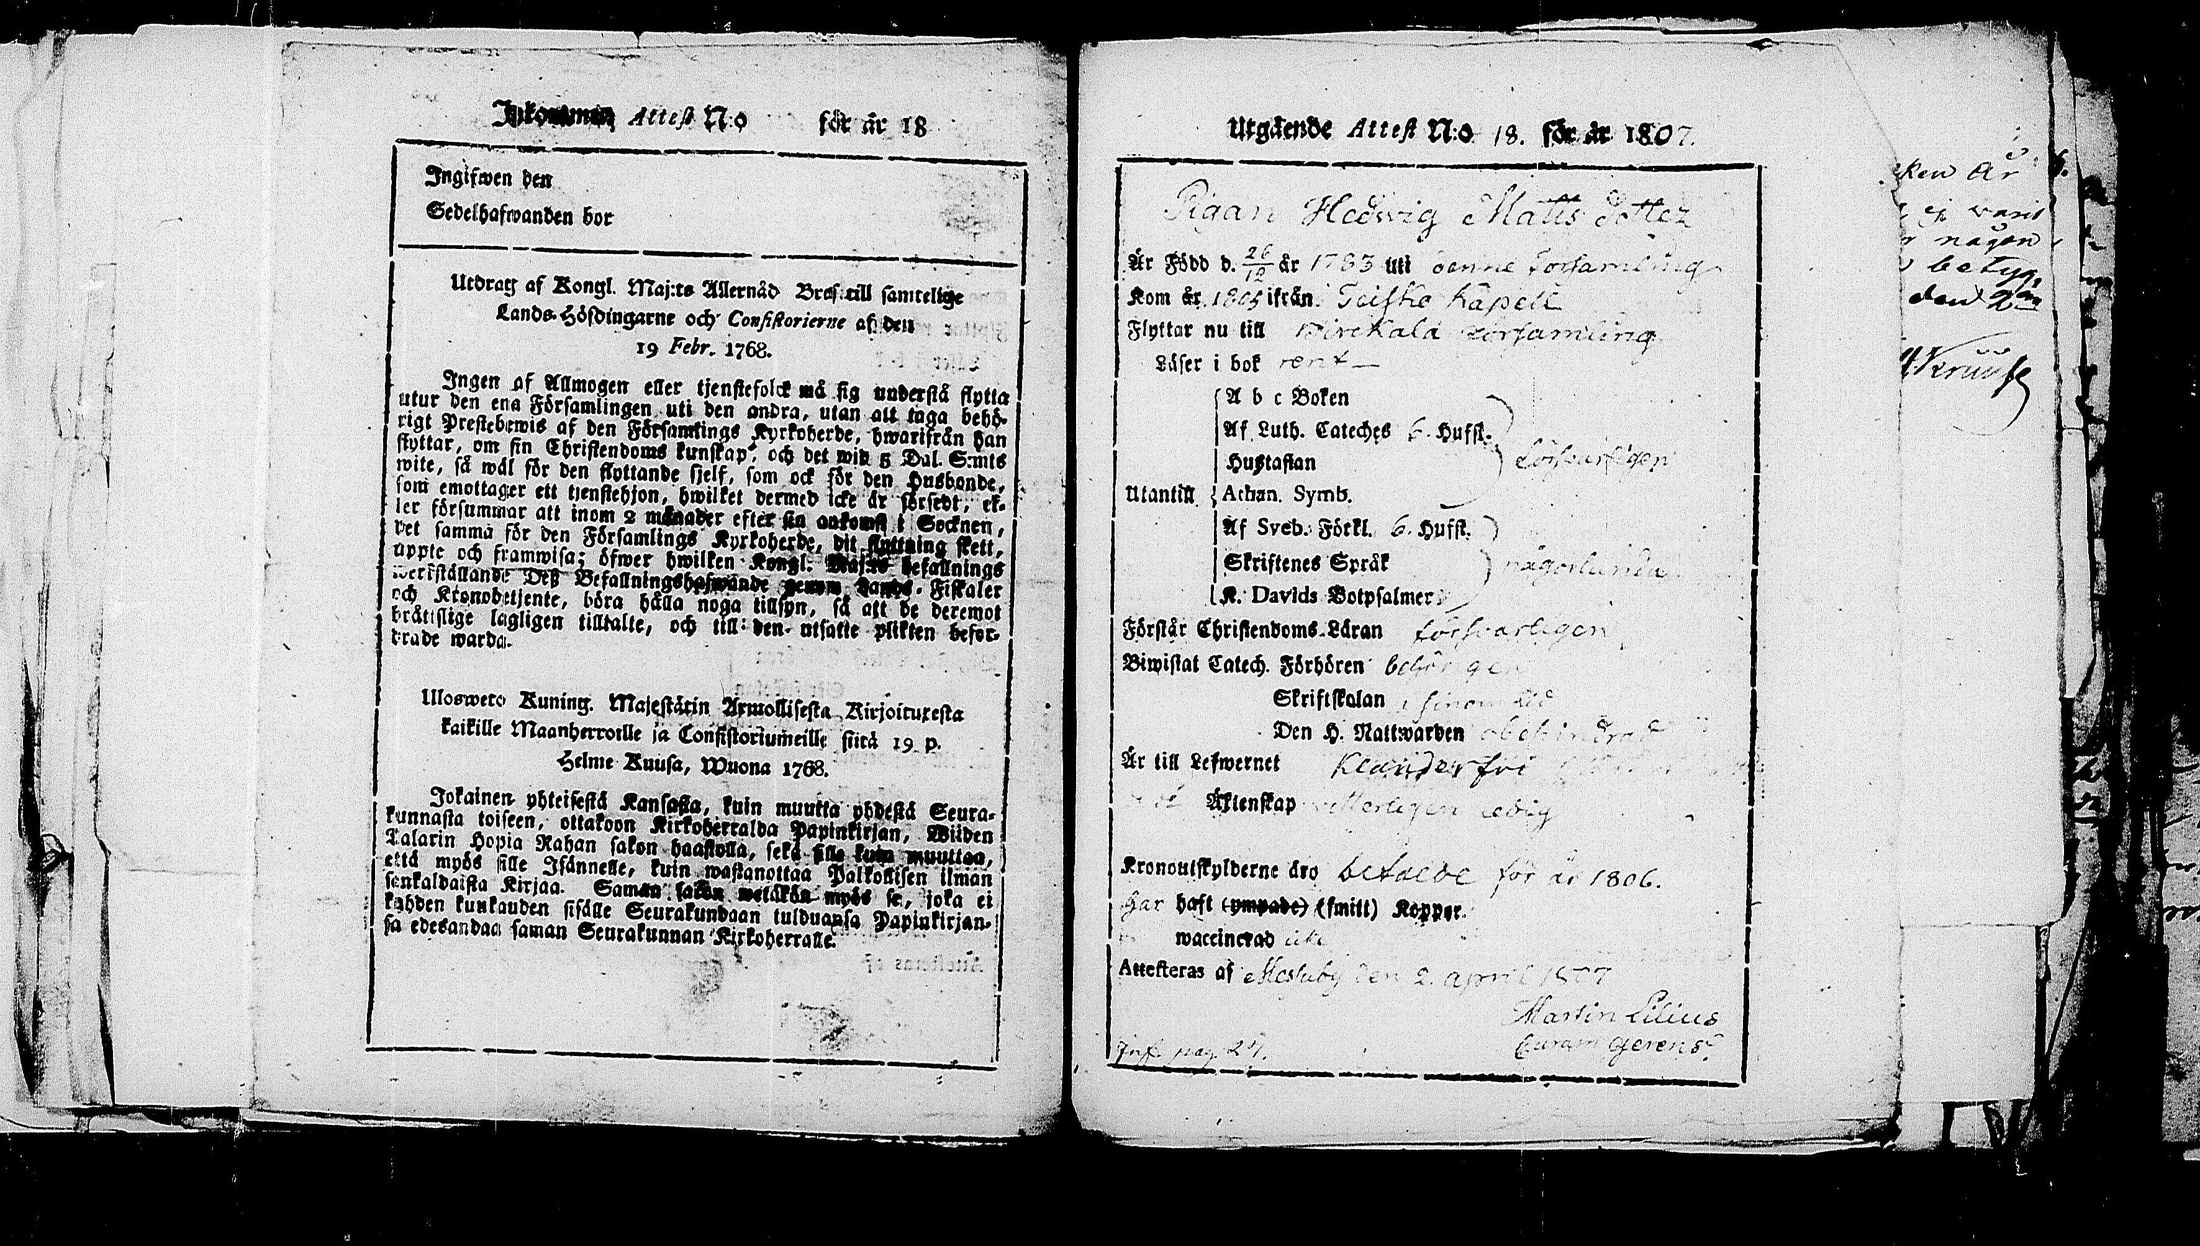 Inkommen Attest N:o för år 18
Ingifwen den
Sedelhafwanden bor
Utdrag af Kongl. Maj:ts Allernåd Bref till samtelige
Lands-Höfdingarne och Consistorierne af den
19 Febr. 1768.
Ingen af Allmogen eller tjenstefolck må sig understå flytta
utur den ena Församlingen uti den andra, utan att taga behö-
rigt Prestebewis af den Församlings Kyrkoherde, hwarifrån han
flyttar, om sin Christendoms kunskap, och det wid 5 Dal. S:mts
wite, så wäl för den flyttande sjelf, som ock för den Husbonde,
som emottager ett tjenstehjon, hwilket dermed icke är försedt, el-
ler försummar att inom 2 månader efter sin ankomst i Socknen,
det samma för den Församlings Kyrkoherde, dit flyttning skett,
uppte och framwisa; öfwer hwilken Kongl. Maj:ts befallnings
werkställande Deß Befallningshafwande genom Lands-Fiskaler
och Kronobetjente, böra hålla noga tillsyn, så att de deremot
bråttslige lagligen tilltalte, och till den utsatte plikten befor-
drade warda.
Ulosweto Kuning. Majestätin Armollisesta Kirjoituxesta
kaikille Maanherroille ja Consistoriumeille siitä 19 p.
Helme Kuusa, Wuona 1768.
Jokainen yhteisestä Kansasta, kuin muutta yhdestä Seura-
kunnasta toiseen, ottakoon Kirkoherralda Papinkirjan, Wiiden
Talarin Hopia Rahan sakon haastolla, sekä sille kuin muuttaa,
että myös sille Isännelle, kuin wastanottaa Palkollisen ilman
senkaldaista Kirjaa. Saman sakon wetäkön myös se, joka ei
kahden kuukauden sisälle Seurakundaan tulduansa Papinkirjan-
sa edesandaa saman Seurakunnan Kirkoherralle.
Utgående Attest N:o 18. för år 1807.
Pigan Hedwig Matts Dotter
Är Född d. 26/12 år 1783 uti denne Församling
Kom år 1805 ifrån Teisko Kapell
Flyttar nu till Birckala Församling
Läser i bok rent
A b c Boken
Af Luth. Cateches 6. Hufst.
Hustaflan försvarligen
Utantill Athan. Symb.
Af Sveb. Förkl. 6. Hufst.
Skriftenes Språk någorlunda
K. Davids Botpsalmer
Förstår Christendoms-Läran försvarligen
Biwistat Catech. Förhören behörigen
Skriftskolan i sinom tid
Den H. Nattwarden obehindrat
Är till Lefwernet Klanderfri
Äktenskap witterligen ledig
Kronoutskylderne äro betalde för år 1806.
Har haft (ympade) (smitt) Koppor.
waccinerad icke
Attesteras af Messuby den 2. april 1807
Martin Lilius
Curam Gerens.
Infl. pag. 27.
ken är
ej warit
någon
betyg.
den 2